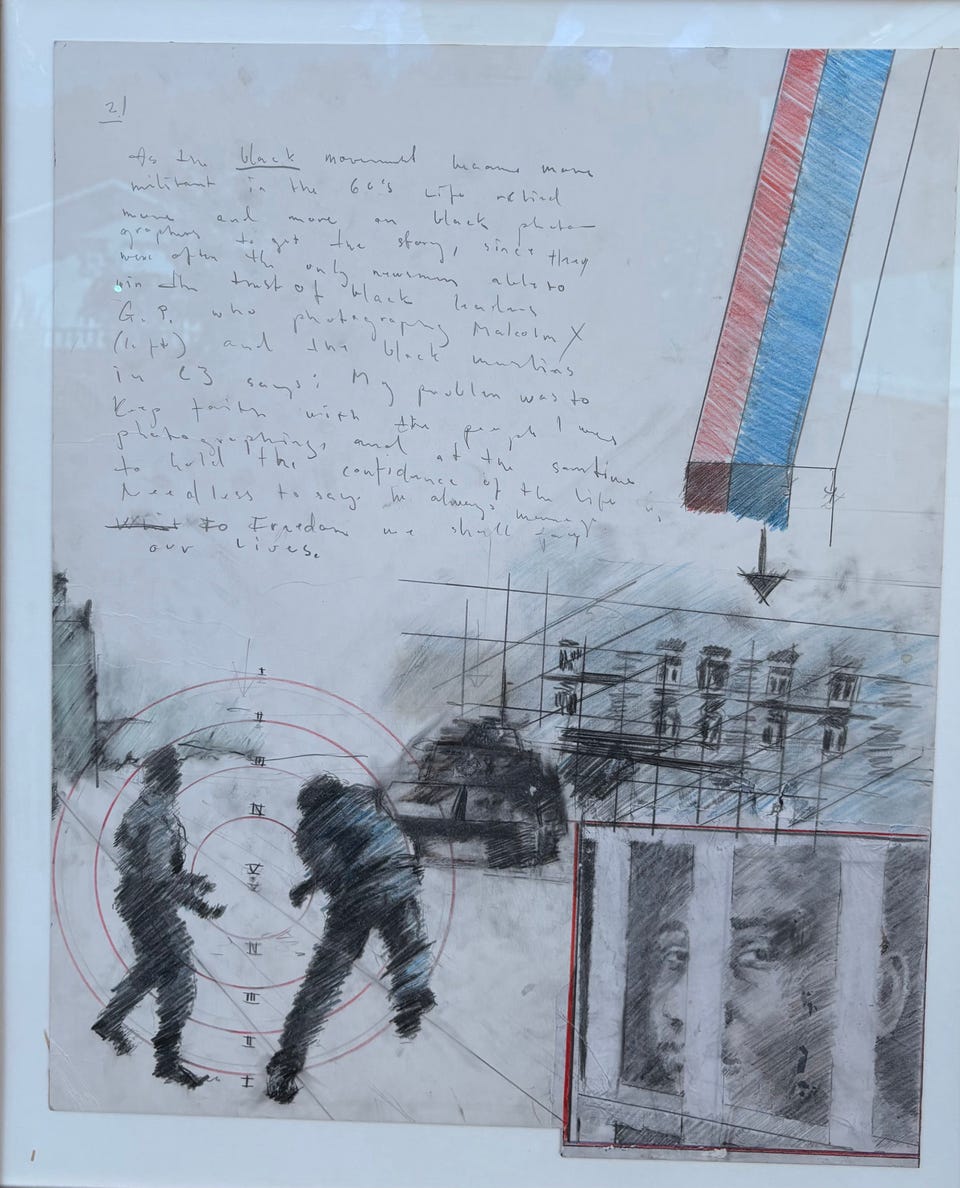 2)
As the black movement became more
militant in the 60's Life relied
more and more on black photo-
graphers to get the story, since they
were often the only newsmen able to
win the trust of black leaders
G.P. who photographing Malcolm X
(left) and the black muslims
in 63 says: My problem was to
Keep faith with the people I was
photographing, and at the sametime
to hold the confidence of the Life
Needless to say: he always manage
to Freedom we shall
our lives.
I
II
III
IV
V
IV
III
II
I